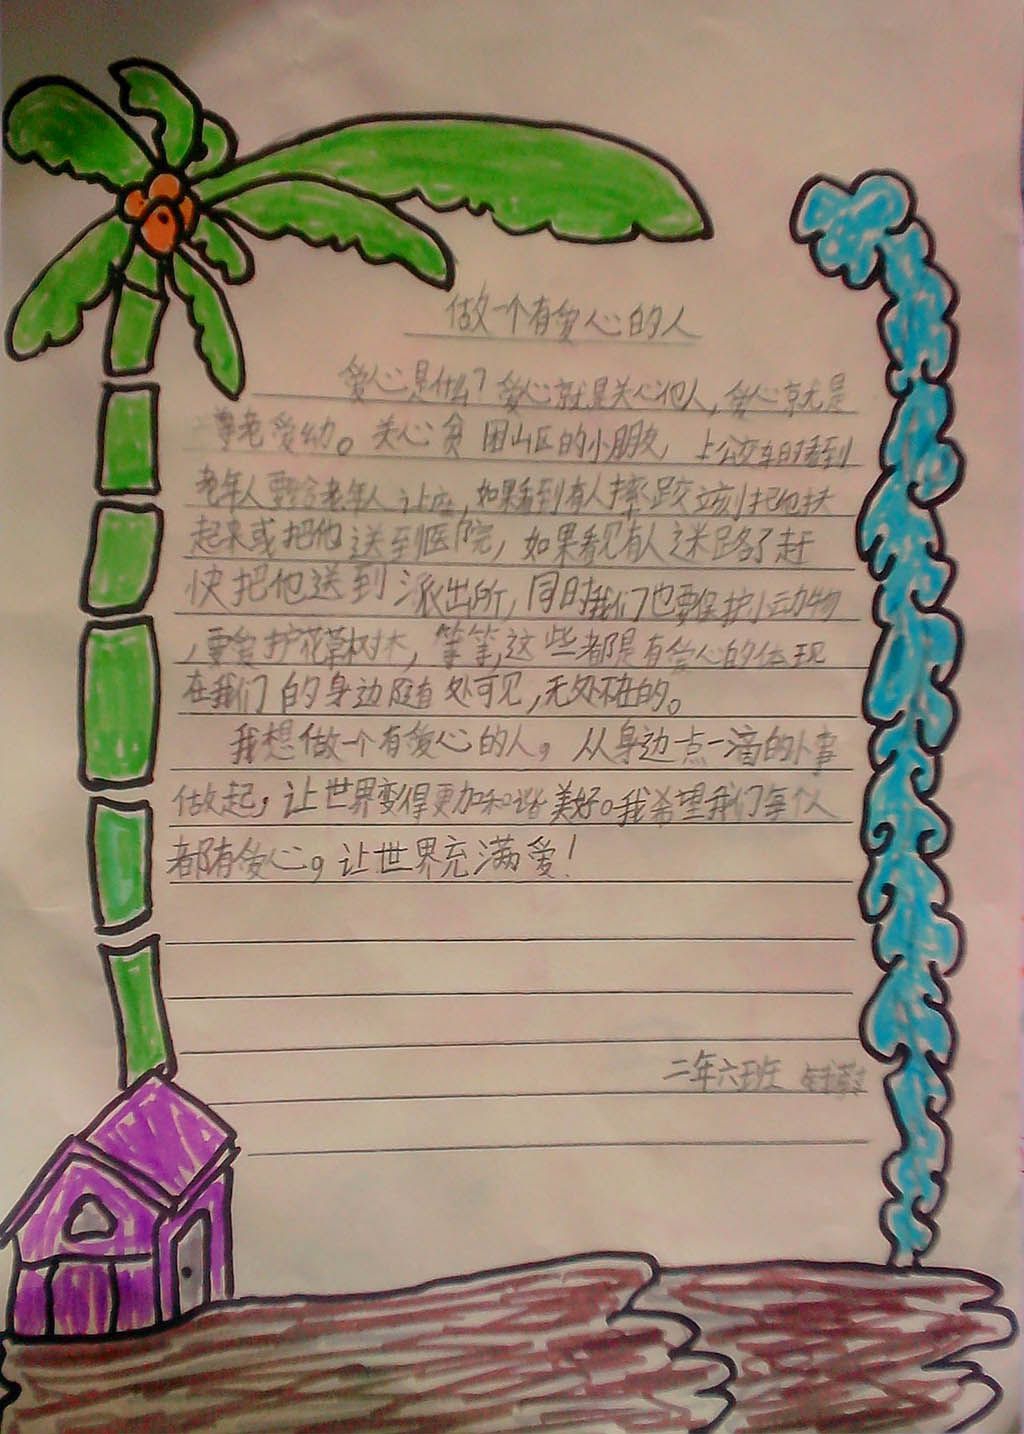 做一个有爱心的人
爱心是什么?爱心就是关心他人,爱心就是
尊老爱幼。关心贫困山区的小朋友 上公交车时看到
老年人要给老年人让座,如果看到有人摔跤立刻把他扶
起来或把他送到医院,如果看见有人迷路了赶
快把他送到派出所,同时我们也要保护小动物
,要爱护花草树木,等等,这些都是有爱心的体现
在我们的身边随有处可见,无处不在的。
我想做一个有爱心的人,从身边点一滴的小事
做起,让世界变得更加和谐美好。我希望我们每个人
都有爱心,让世界充满爱!
二年六班